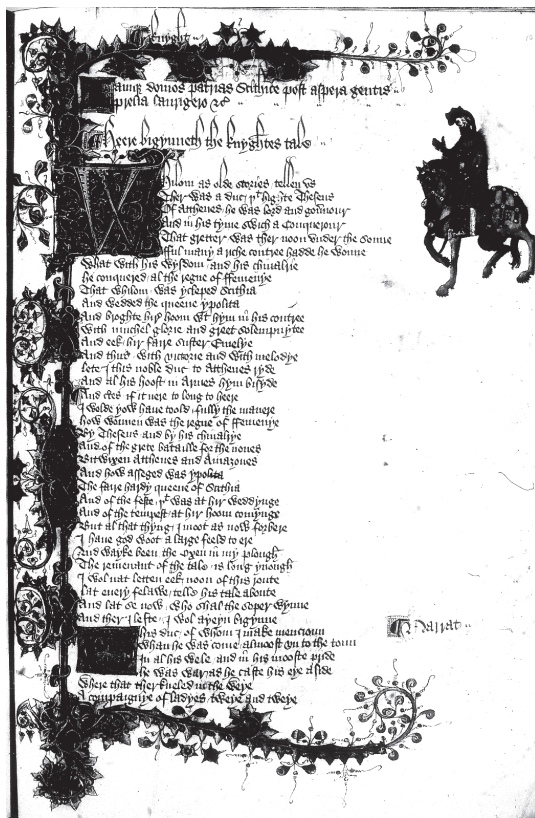 Knyght
Iamque domos patrias Scithice post aspera gentis
prelia laurigero &c
Heere bigynneth the knyghtes tale
Whilom as olde stories tellen us
Ther was a duc þt highte Theseus
Of Atthenes he was lord and governour
And in his tyme swich a conquerour
That gretter was ther noon under the sonne
Fful many a riche contree hadde he wonne
What with his wysdom and his chivalrie
He conquered al the regne of ffemenye
That whilom was ycleped Scithia
And wedded the queene ypolita
And broghte hir hoom wt hym in his contree
With muchel glorie and greet solempnytee
And eek hir faire suster Emelye
And thus with victorie and with melodye
Lete I this noble duc to Atthenes ryde
And al his hoost in armes hym bisyde
And certes if it nere to long to heere
I wolde yow have toold fully the manere
How wonnen was the regne of ffemenye
By Theseus and by his chivalrye
And of the grete bataille for the nones
Bitwixen Atthenes and Amazones
And how asseged was ypolita
The faire hardy queene of Scithia
And of the feste þt was at hir weddynge
And of the tempest at hir hoom comynge
But al that thyng I moot as now forbere
I have god woot a large feeld to ere
And wayke been the oxen in my plough
The remenant of the tale is long ynough
I wol nat letten eek noon of this route
Lat every felawe telle his tale aboute
And lat se now who shal the soper wynne
And ther I lefte I wol ayeyn bigynne
Narrat
This duc of whom I make mencioun
Whan he was come almoost to the toun
In al his wele and in his mooste pride
He was war as he caste his eye aside
Where that ther kneled in the weye
A compaignye of ladyes tweye and tweye